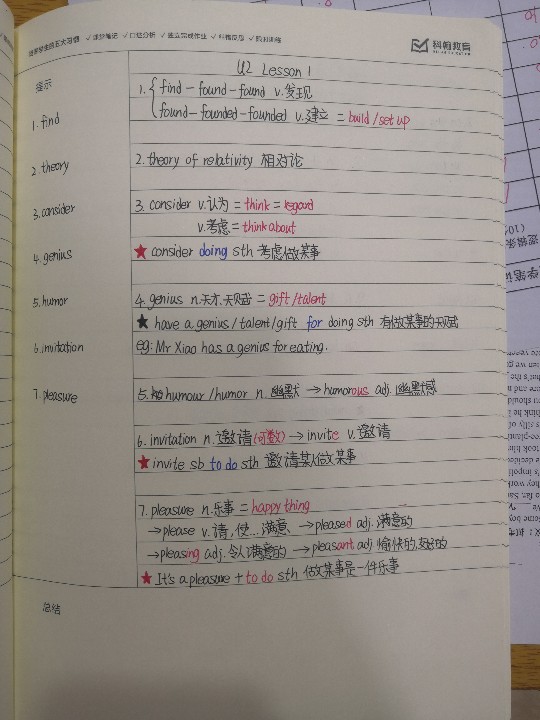 ✓课堂笔记 ✓口述分析 ✓独立完成作业 ✓错题反思 ✓限时训练
科翰教育
提示
U2 Lesson 1
1. find
1. find - found - found v. 发现
found - founded - founded v. 建立 = build / set up
2. theory
2. theory of relativity 相对论
3. consider
3. consider v. 认为 = think = regard
v. 考虑 = think about
4. genius
★ consider doing sth 考虑做某事
5. humor
4. genius n. 天才, 天赋 = gift / talent
★ have a genius / talent / gift for doing sth 有做某事的天赋
6. invitation
eg: Mr Xiao has a genius for eating.
7. pleasure
5. humour / humor n. 幽默 → humorous adj. 幽默感
6. invitation n. 邀请 (可数) → invite v. 邀请
★ invite sb to do sth 邀请某人做某事
7. pleasure n. 乐事 = happy thing
→ please v. 请, 使... 满意 → pleased adj. 满意的
→ pleasing adj. 令人满意的 → pleasant adj 愉快的, 友好的
★ It's a pleasure + to do sth 做某事是一件乐事
总结